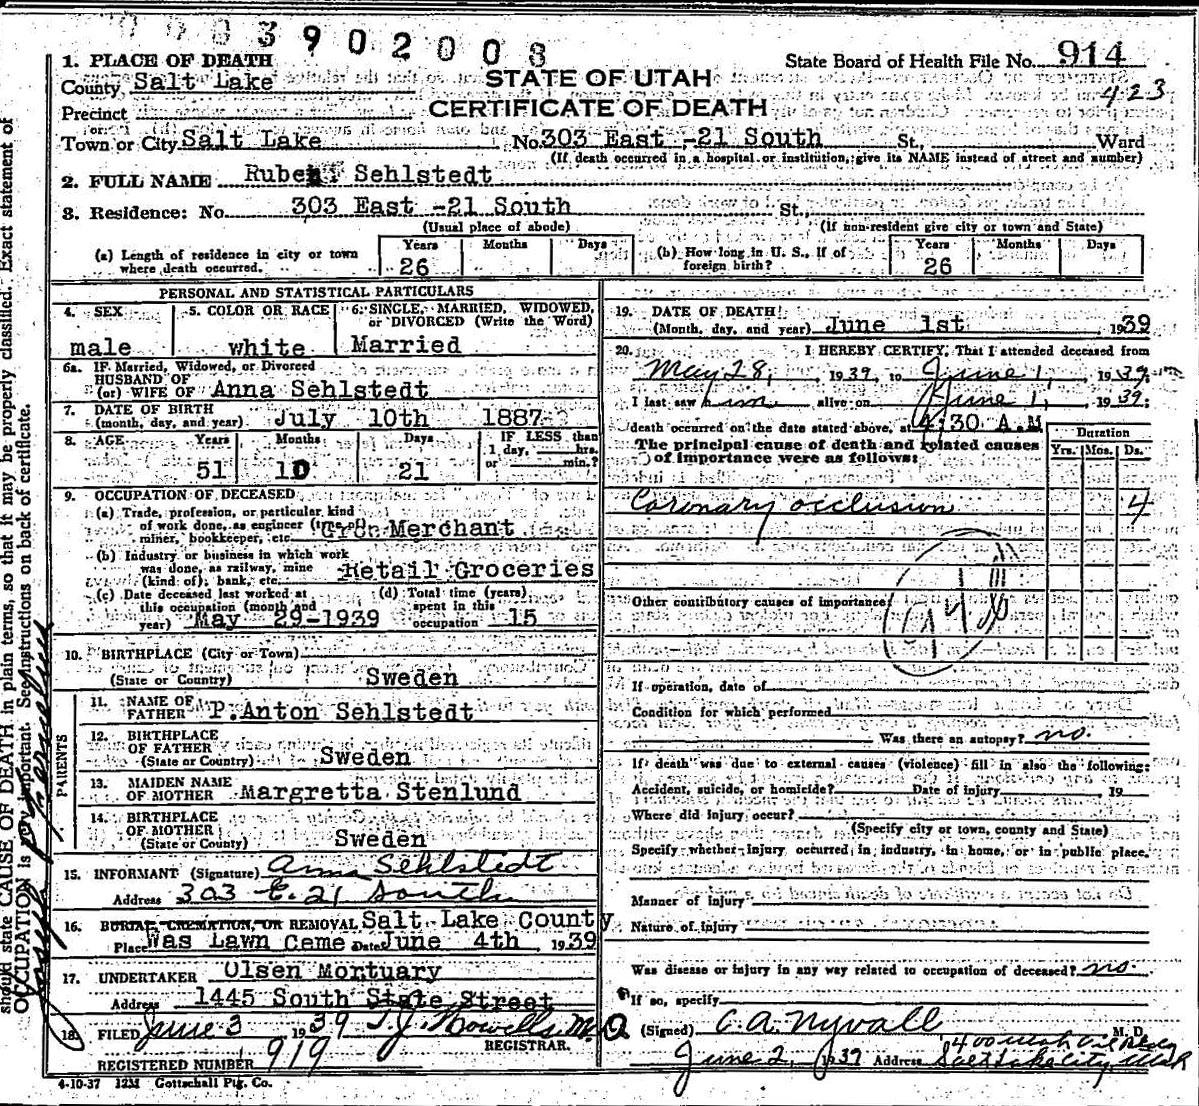 0003902008
1. PLACE OF DEATH
State Board of Health File No. 914
County Salt Lake
STATE OF UTAH
423
Precinct
CERTIFICATE OF DEATH
or
Town or City Salt Lake No. 303 East -21 South St., Ward
(If death occurred in a hospital or institution, give its NAME instead of street and number)
2. FULL NAME Sehlstedt
3. Residence: No. 303 East -21 South St.,
(Usual place of abode) (If non-resident give city or town and State)
(a) Length of residence in city or town where death occurred. Years 26 Months Days (b) How long in U. S., if of foreign birth? Years 26 Months Days
PERSONAL AND STATISTICAL PARTICULARS
4. SEX 5. COLOR OR RACE 6. SINGLE, MARRIED, WIDOWED, or DIVORCED (Write the Word)
male white Married
6a. IF Married, Widowed, or Divorced
HUSBAND OF
(or) WIFE OF Anna Sehlstedt
7. DATE OF BIRTH
(month, day, and year) July 10th 1887
8. AGE Years Months Days IF LESS than
1 day, hrs.
51 10 21 or min.?
9. OCCUPATION OF DECEASED
(a) Trade, profession, or particular kind
of work done, as engineer
miner, bookkeeper, etc. Merchant
(b) Industry or business in which work
was done, as railway, mine
(kind of); bank, etc. Retail Groceries
(c) Date deceased last worked at (d) Total time (years)
this occupation (month and spent in this
year) May 29-1939 occupation 15
10. BIRTHPLACE (City or Town)
(State or Country) Sweden
PARENTS
11. NAME OF
FATHER P. Anton Sehlstedt
12. BIRTHPLACE
OF FATHER
(State or Country) Sweden
13. MAIDEN NAME
OF MOTHER Margretta Stenlund
14. BIRTHPLACE
OF MOTHER
(State or Country) Sweden
15. INFORMANT (Signature) Anna Sehlstedt
Address 303 E. 21 South
16. BURIAL, CREMATION, OR REMOVAL Salt Lake County
Place Was Lawn Ceme Date June 4th 1939
17. UNDERTAKER Olsen Mortuary
Address 1445 South State Street
18. FILED June 3 1939 T. J. Howells M.D
REGISTRAR.
REGISTERED NUMBER 919
4-10-37 12M Gottschall Ptg. Co.
19. DATE OF DEATH
(Month, day, and year) June 1st 1939
20. I HEREBY CERTIFY, That I attended deceased from
May 28, 1939, to June 1, 1939
I last saw him alive on June 1, 1939;
death occurred on the date stated above, at 4:30 A.M
The principal cause of death and related causes
of importance were as follows:
Duration
Yrs. Mos. Ds.
Coronary occlusion 4
Other contributory causes of importance:
If operation, date of
Condition for which performed
Was there an autopsy? no.
If death was due to external causes (violence) fill in also the following:
Accident, suicide, or homicide? Date of injury 19
Where did injury occur?
(Specify city or town, county and State)
Specify whether injury occurred in industry, in home, or in public place.
Manner of injury
Nature of injury
Was disease or injury in any way related to occupation of deceased? no.
If so, specify
(Signed) C. A. Nyvall M. D.
June 2, 1939 Address Salt Lake City, Utah
should state CAUSE OF DEATH in plain terms, so that it may be properly classified. Exact statement of
OCCUPATION is very important. See instructions on back of certificate.